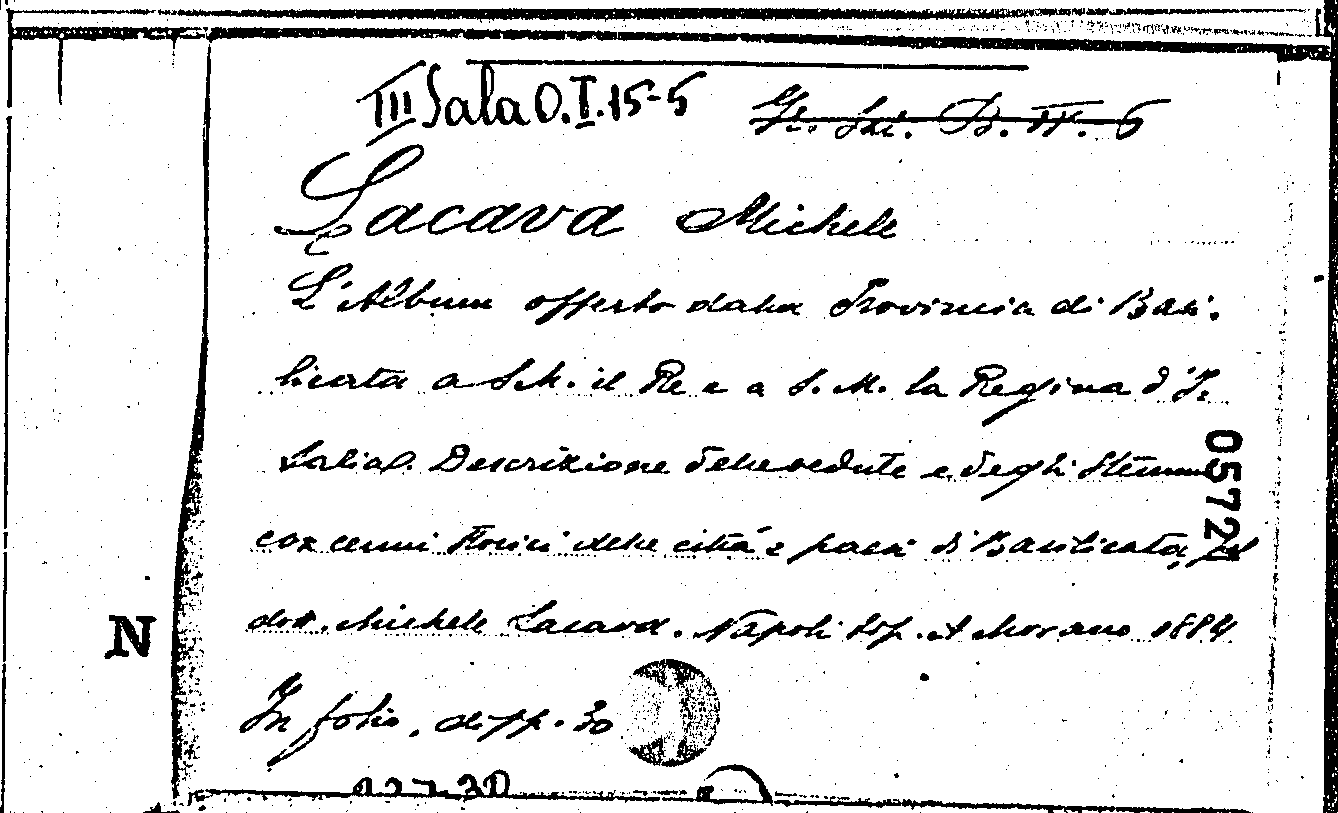 III Sala O.I.15-5
B. II. 6
Lacava Michele
L'Album offerto dalla Provincia di Basi-
licata a S.M. il Re e a S. M. la Regina d'I-
talia. Descrizione delle vedute e degli Stemmi
con cenni storici delle città e paesi di Basilicata, pel
dott. Michele Lacava. Napoli tip. A Morano 1884
In folio, di pp. 30
05721
N